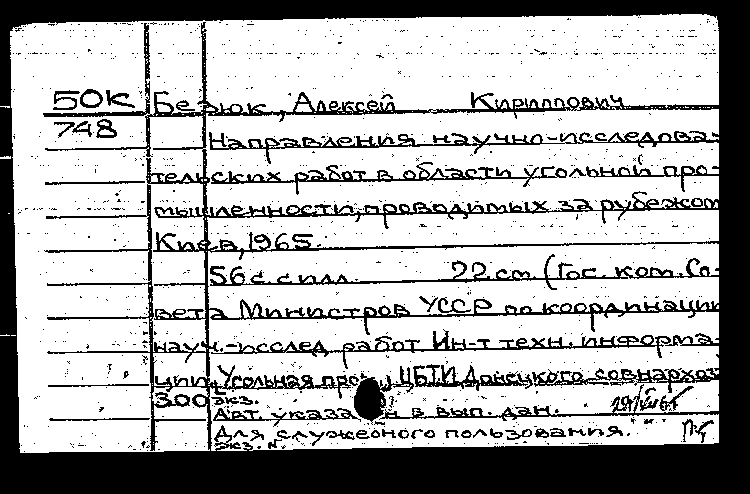 50К Безюк, Алексей Кириллович
748
Направления научно-исследова-
тельских работ в области угольной про-
мышленности, проводимых за рубежом
Киев, 1965.
56 с. с илл. 22 см. (Гос. ком. Со-
вета Министров УССР по координации
науч.-исслед. работ Ин-т техн. информа-
ции, Угольная ЦБТИ Донецкого совнархоз
300 экз.
Авт. указан в вып. дан.
Для служебного пользования.
Экз. №